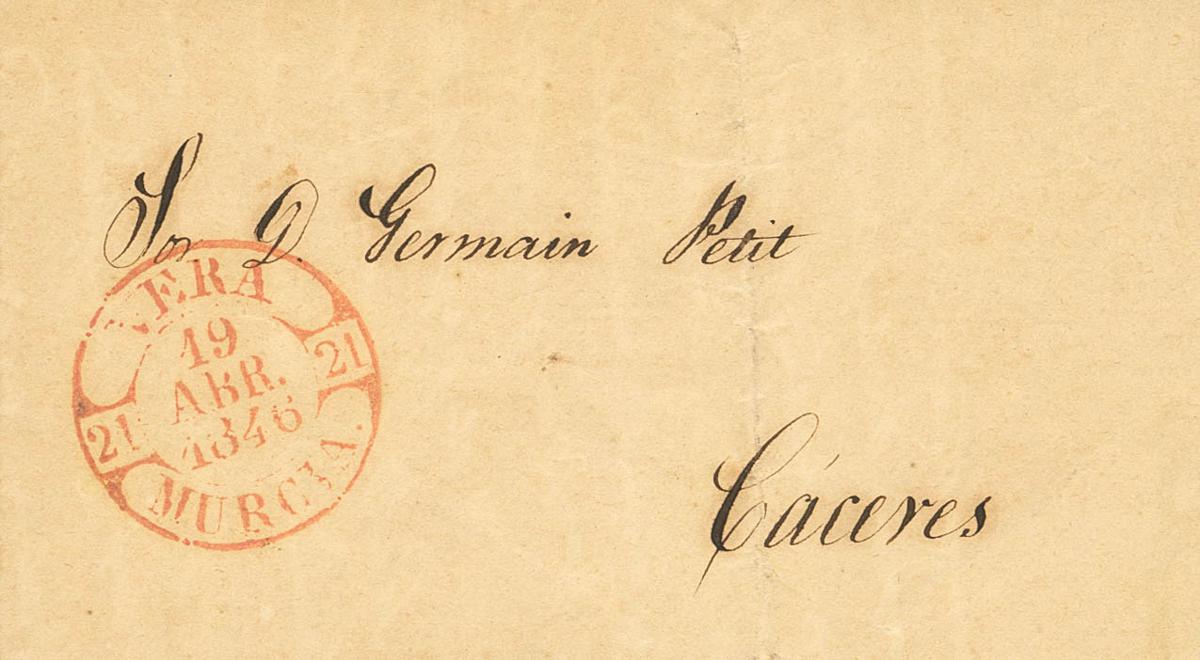 Sor D. Germain Petit
VERA
19
ABR.
1846
21
21
MURCIA.
Cáceres